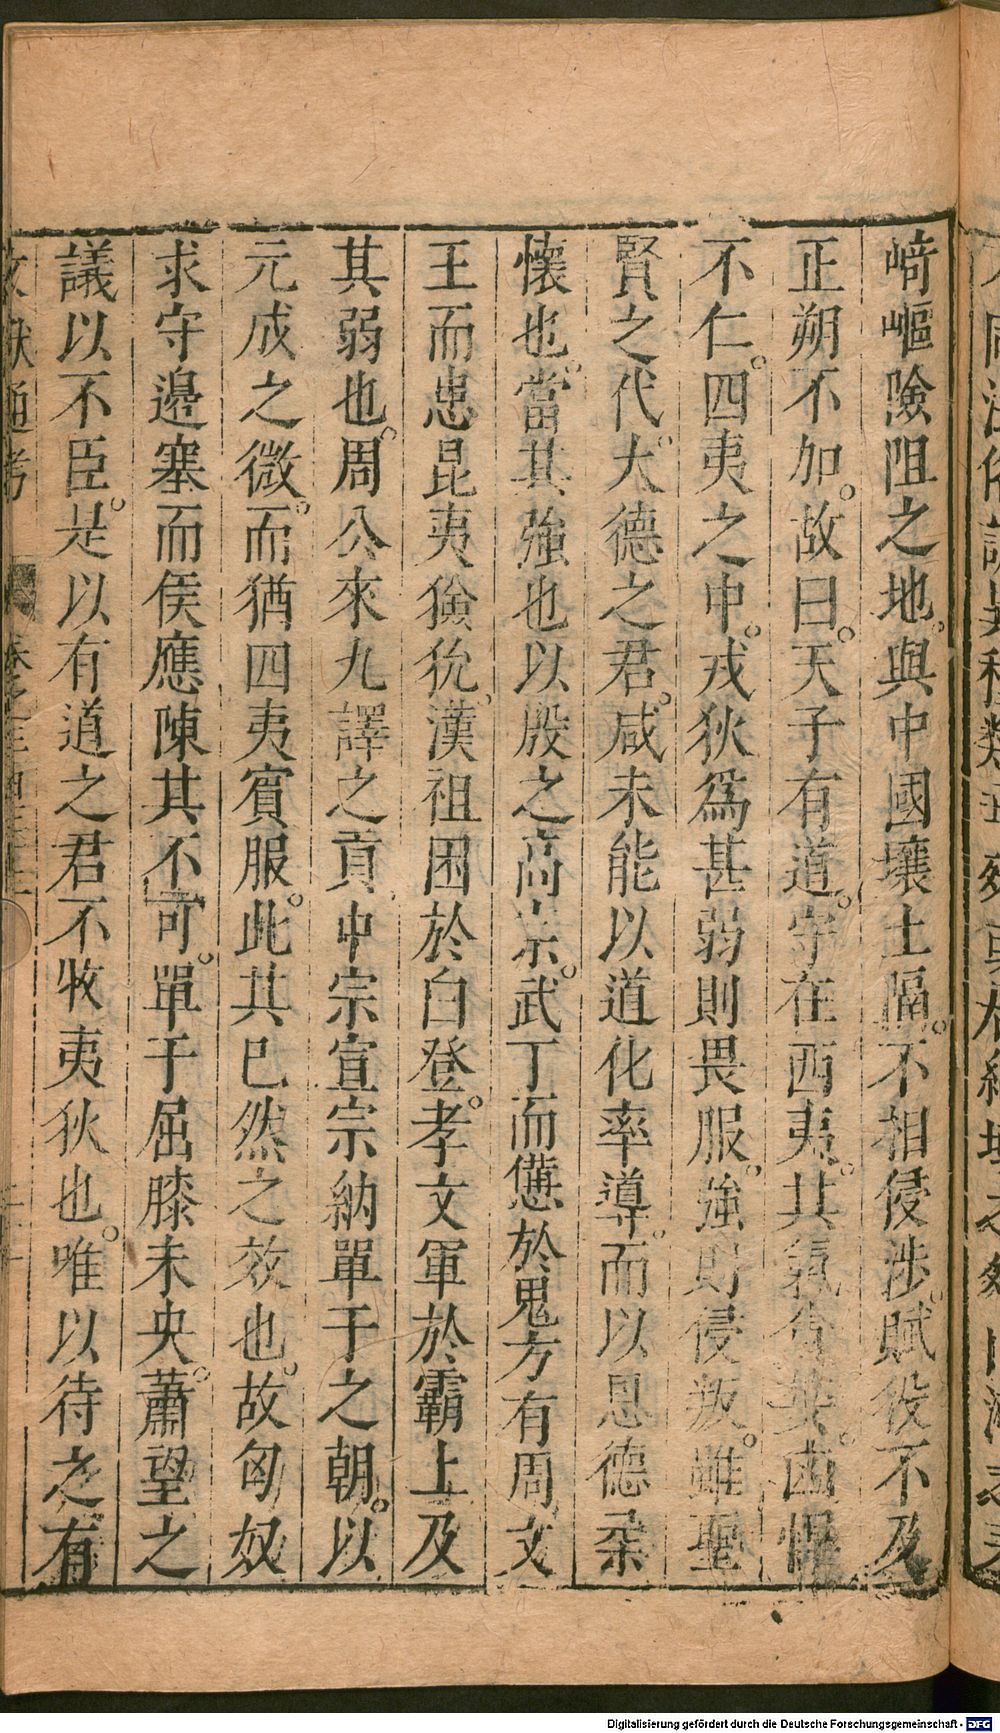 崎嶇險阻之地。與中國壤土隔。不相侵涉。賦役不及
正朔不加。故曰。天子有道。守在四夷。其氣貪婪。凶悍
不仁。四夷之中。戎狄爲甚弱則畏服。強則侵叛。雖聖
賢之代。大德之君。咸未能以道化率導。而以恩德柔
懷也。當其強也以殷之高宗。武丁而憊於鬼方有周文
王而患昆夷獫狁。漢祖困於白登。孝文軍於霸上及
其弱也。周公來九譯之貢。中宗宣宗納單于之朝。以
元成之微。而猶四夷賓服。此其已然之效也。故匈奴
求守邊塞而侯應陳其不可。單于屈膝未央。蕭望之
議以不臣。是以有道之君不牧夷狄也。唯以待之有
文獻通考 卷之三百
Digitalisierung gefördert durch die Deutsche Forschungsgemeinschaft - DFG